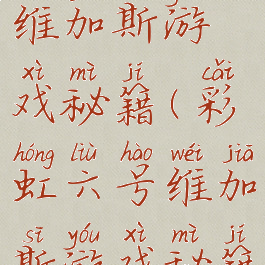 维加斯游
xì mì jí cǎi
戏秘籍(彩
hóng liù hào wéi jiā
虹六号维加
sī yóu xì mì jí
斯游戏秘籍